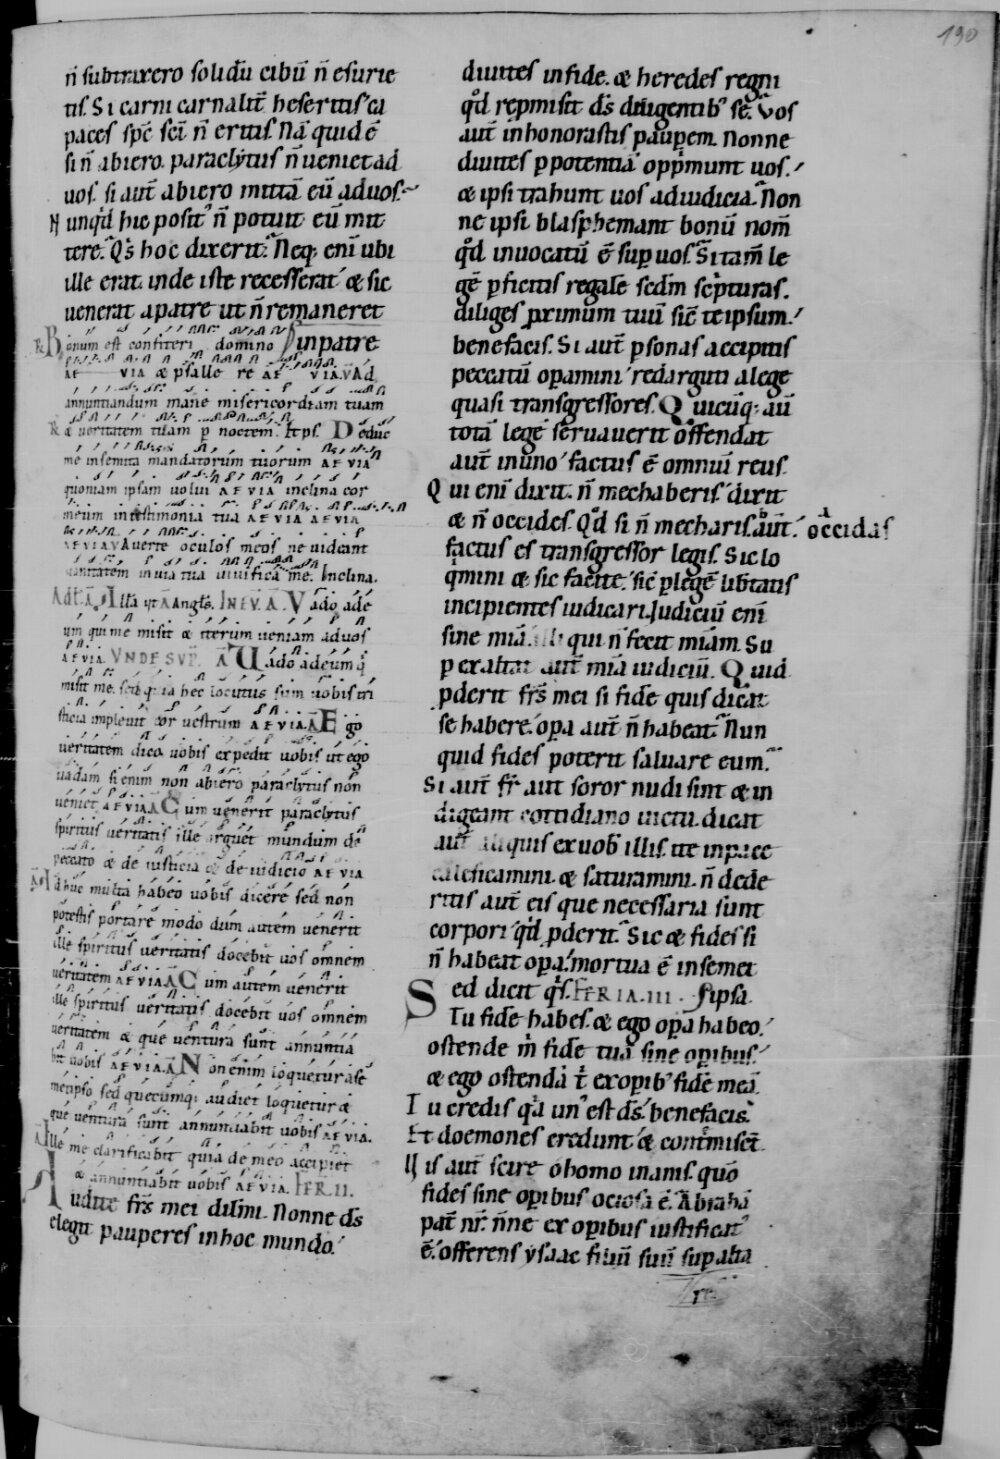 190
n̄ subtraxero solidū cibū n̄ esurie
tis. Si carni carnalit̄ heseritis ca
paces sp̄c sc̄i n̄ eritis. Nā quid ē
si n̄ abiero. paraclytus n̄ ueniet ad
uos. si aut̄ abiero mittā eū ad uos.
Nunq̇d hic posit᾿ n̄ potuit eū mit
tere. Q̇s hoc dixerit. Neq; eni ubi
ille erat. inde iste recesserat & sic
uenerat a patre ut n̄ remaneret
℟ Bonum est confiteri domino in patre
AE VIA & psalle re AE VIA. V Ad
annuntiandum mane misericordiam tuam
℟ & ueritatem tuam p noctem. Et ps. Deduc
me in semita mandatorum tuorum AEVIA
quoniam ipsam uolui AEVIA inclina cor
meum in testimonia tua AEVIA AEVIA
AEVIA V Auerte oculos meos ne uideant
uanitatem in uia tua uiuifica me. Inclina.
Vado ade
um qui me misit & iterum ueniam ad uos
AEVIA. VNDE SVP̄. Ā Uado ad eum q̇
misit me. sed quia hec locutus sum uobis tri
sticia impleuit cor uestrum AEVIA. Ā Ego
ueritatem dico uobis expedit uobis ut ego
uadam si enim non abiero paraclytus non
ueniet AEVIA Ā Cum uenerit paraclytus
spiritus ueritatis ille arguet mundum de
peccato & de iusticia & de iudicio AEVIA
Ā Adhuc multa habeo uobis dicere sed non
potestis portare modo dum autem uenerit
ille spiritus ueritatis docebit uos omnem
ueritatem AEVIA Ā Cum autem uenerit
ille spiritus ueritatis docebit uos omnem
ueritatem & que uentura sunt annuntia
bit uobis AEVIA. Ā Non enim loquetur ase
metipso sed quecumq; audiet loquetur &
que uentura sunt annuntiabit uobis AEVIA.
Ā Ille me clarificabit quia de meo accipiet
& annuntiabit uobis AEVIA. FER. II.
Audite fr̄s mei dil̄mi. Nonne d̄s
elegit pauperes in hoc mundo.
diuites in fide. & heredes regni
q̊d repmisit d̄s diligentib᾿ se. Vos
aut̄ inhonorastis paupem. Nonne
diuites p potentiā opṗmunt uos.
& ipsi trahunt uos ad iudicia. Non
ne ipsi blasphemant bonū nom̄
q̊d inuocatū ē sup uos. Si tam̄ le
gē pficitis regalē sedm sċpturas.
diliges proximum tuū sic̄ te ipsum.
benefacis. Si aut̄ psonas accipitis
peccatū opamini redarguti a lege
quasi transgressores. Quicūq; aū
totā legē seruauerit offendat
aut̄ in uno factus ē omniū reus.
Qui eni dixit. n̄ mechaberis dixit
& n̄ occides. Q̊d si n̄ mecharis. aut̄ occidas
factus es transgressor legis. Sic lo
q̇mini & sic facite. sic̄ p legē lib̄tatis
incipientes iudicari. Iudiciū eni
sine miā. illi qui n̄ fecit miām. Su
p exaltat aut̄ miā iudiciū. Quid
pderit fr̄s mei si fidē quis dicat
se habere. opa aut̄ n̄ habeat. Nun
quid fides poterit saluare eum.
Si aut̄ fr̄ aut soror nudi sint & in
digeant cottidiano uictu. dicat
aut̄ aliquis ex uob᾿ illis. ite in pace
caleficamini. & saturamini. n̄ dede
ritis aut̄ eis que necessaria sunt
corpori q̇d pderit. Sic & fides si
n̄ habeat opa. mortua ē in semet
Sed dicit q̇s. FERIA. III. ipsa.
Tu fidē habes. & ego opa habeo.
ostende m̄ fidē tuā sine opibus.
& ego ostendā t̄ ex opib᾿ fidē meā.
Tu credis q̇a un᾿ est d̄s. benefacis.
Et doemones credunt & conṫmisct̄.
Uis aut̄ scire o homo inanis. quō
fides sine opibus ociosa ē. Abrahā
pat̄ nr̄ n̄ne ex opibus iustificat᾿
ē. offerens ysaac filiū suū sup alta
re